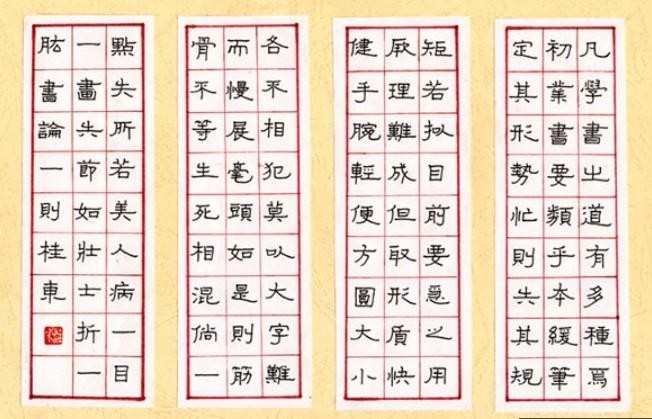 凡學書之道有多種焉
初業書要類乎本緩筆
定其形勢忙則失其規
矩若拟目前要急之用
厥理難成但取形質快
健手腕輕便方圓大小
各不相犯莫以大字難
而慢展毫頭如是則筋
骨不等生死相混倘一
點失所若美人病一目
一畫失節如壯士折一
肱書論一則桂東